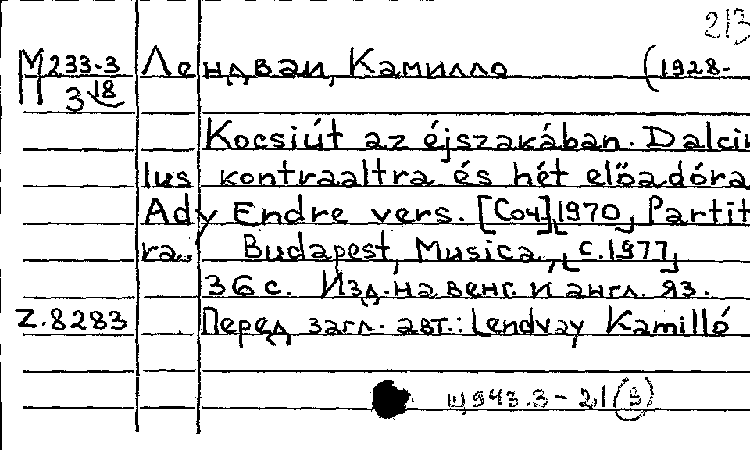 213
М233-3 Лендваи, Камилло (1928-
3 18
Kocsiút az éjszakában. Dalcik
lus kontraaltra és hét előadóra
Ady Endre vers. [Соч] 1970, Partit
ra. Budapest, Musica, [c.1977]
36 с. Изд. на венг. и англ. яз.
Z.8283 Перед загл. авт.: Lendvay Kamilló
Щ943.3-21(3)